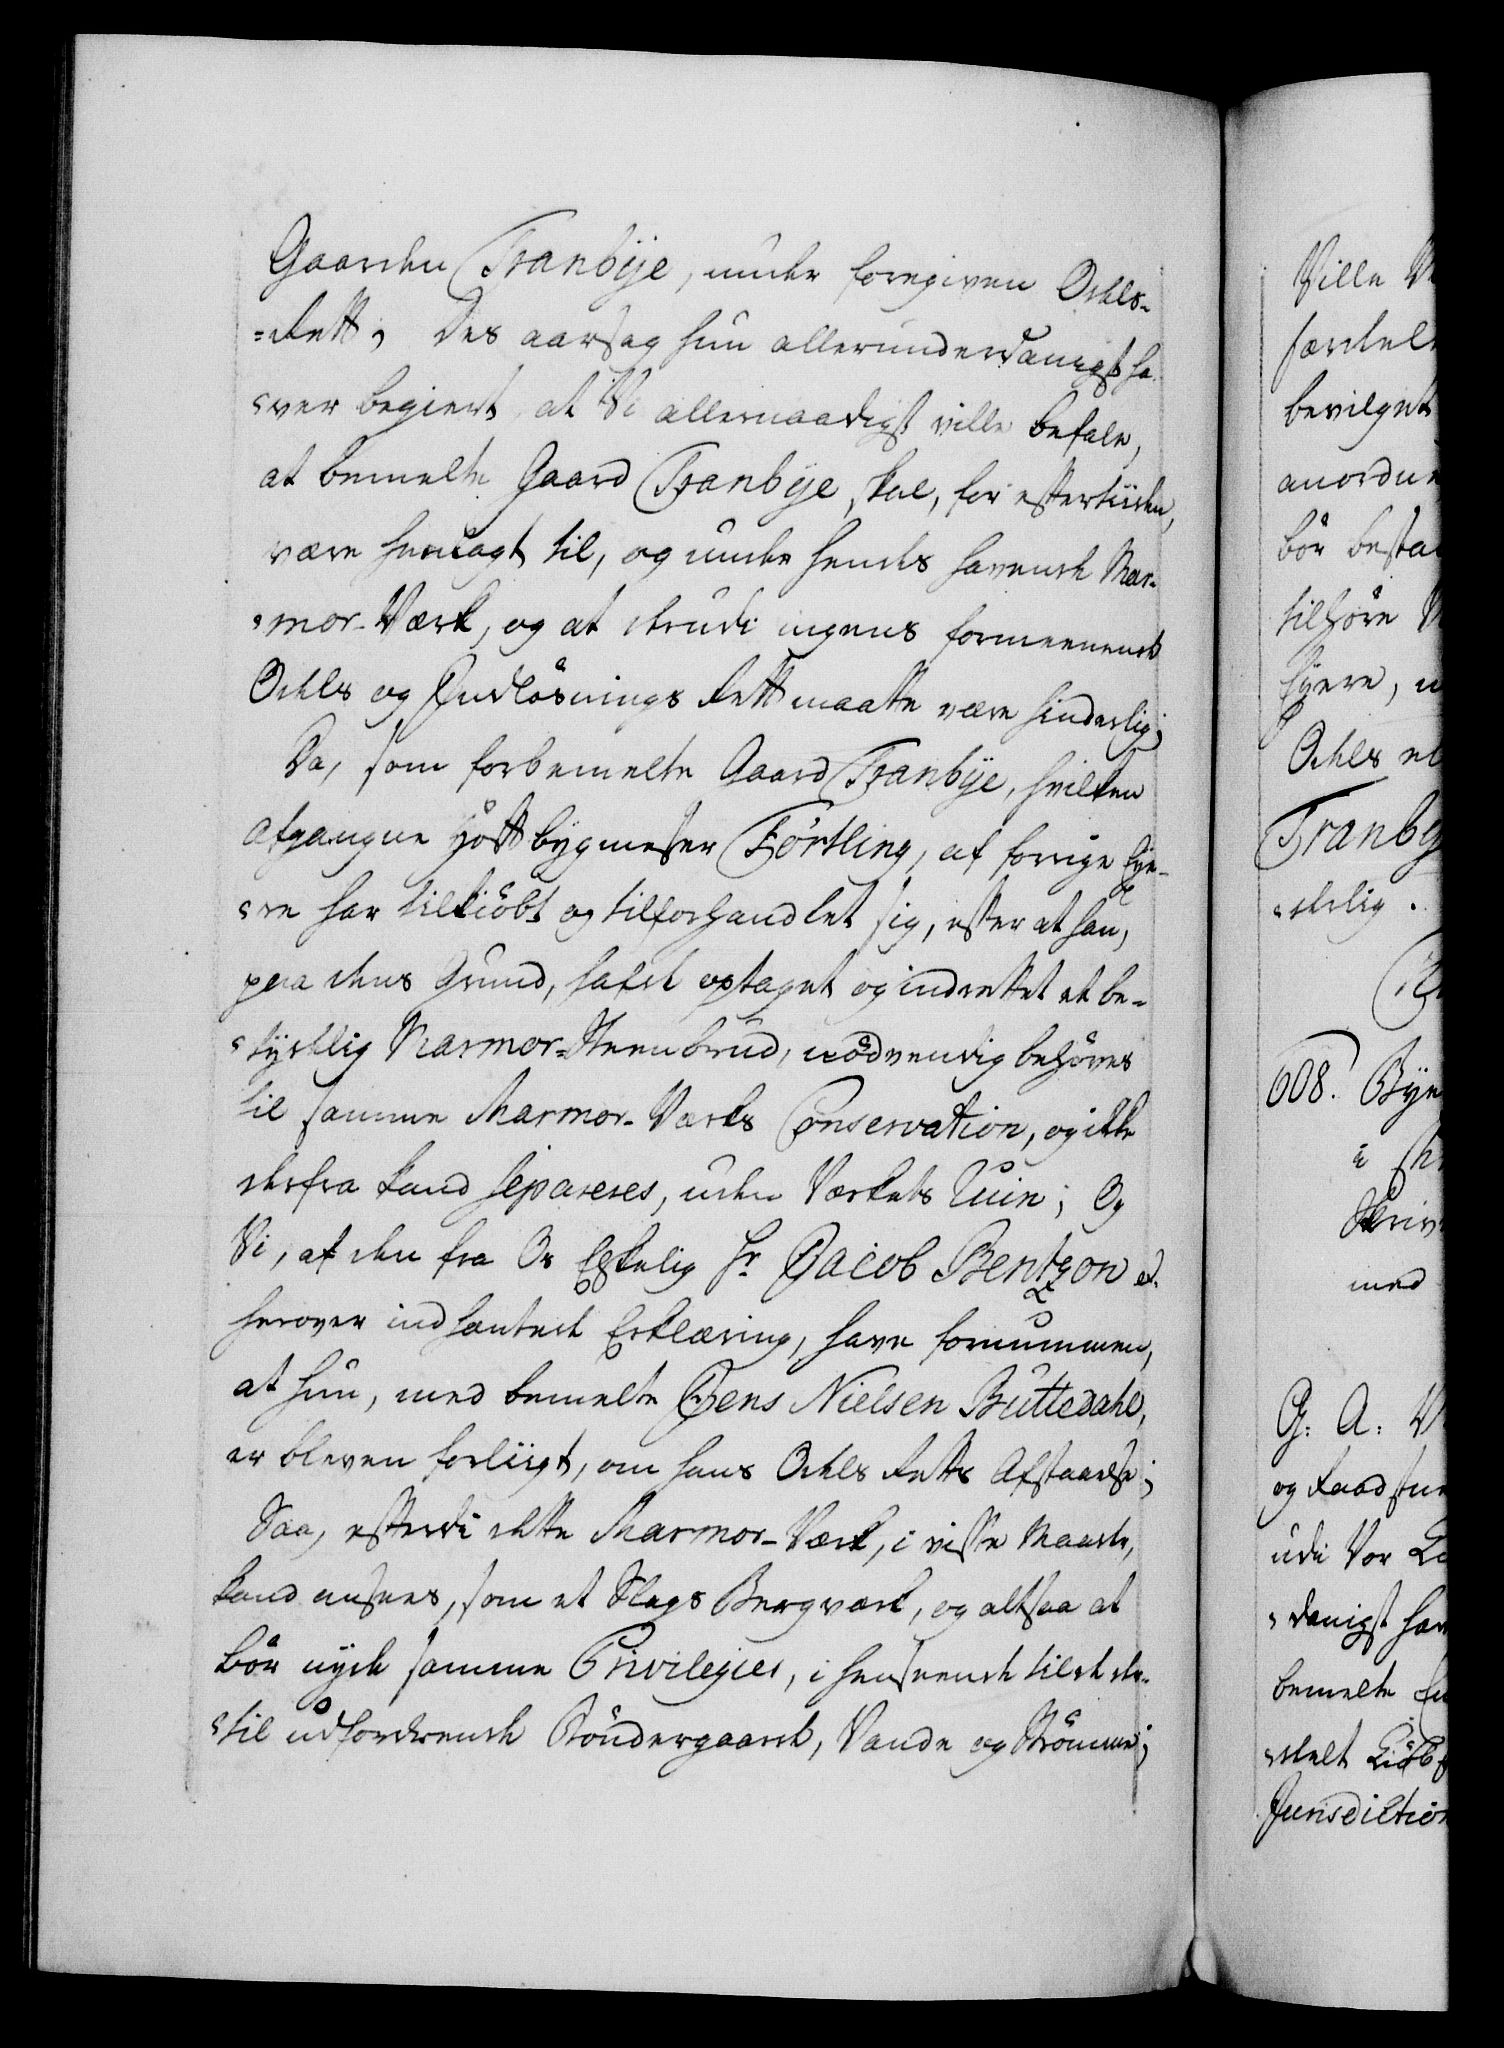 Gaarden Tranbÿe, under foregiven Odels-
=Rett; Des aarsag hun allerunderdanigst ha-
=ver begiert, at Vi allernaadigst ville befale,
at bemelte Gaard Tranbÿe, skal, for eftertiiden,
være henlagt til, og under hendes havende Mar-
=mor-Værk, og at derudi ingens formeenende
Odels og Indløsnings Rett maatte være hinderlig;
Da, som forbemelte Gaard Tranbÿe, hvilken
afgangne Hoffbygmester Förtling, af forrige Eye-
=re har tilkiöbt og tilforhandlet sig, efter at han,
paa dens Grund, hafde optaget og indrettet et be-
=tydelig Marmor-Steenbrud, nödvendig behöves
til samme Marmor-Værks Conservation, og ikke
derfra kand separeres, uden Værkets Ruin; Og
Vi, af den fra Os Elskelig Hr Jacob Bentzon
herover indhentede Erklæring, have fornummen,
at hun, med bemelte Jens Nielsen Buttedahl,
er bleven forliigt, om hans Odels Retts Afstaaelse;
Saa, efterdi dette Marmor-Værk, i visse Maade,
kand ansees, som et Slags Bergværk, og altsaa at
bör nyde samme Privilegier, i henseende til de der-
=til udfordrende Böndergaarde, Vande og Strömme;
Ville
bevilget
bör
Odels
Tranby
=derlig.
608. Bÿe
i
Skriv
med
G. A. V
udi Vor
=danigst hav
bemelte
Jurisdiction